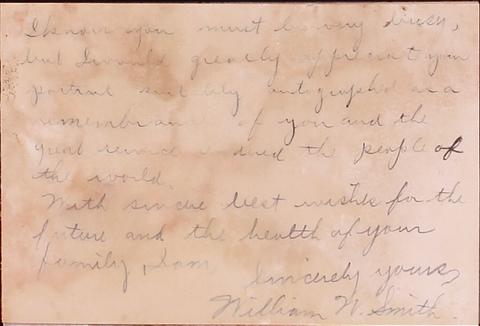 I know you must be very busy,
but I would greatly appreciat you
portrait suitably autographed as a
remembrance of you and the
great service rendered the people of
the world.
With sincere best wishes for the
future and the health of your
family, I am,
Sincerely yours,
William W. Smith.